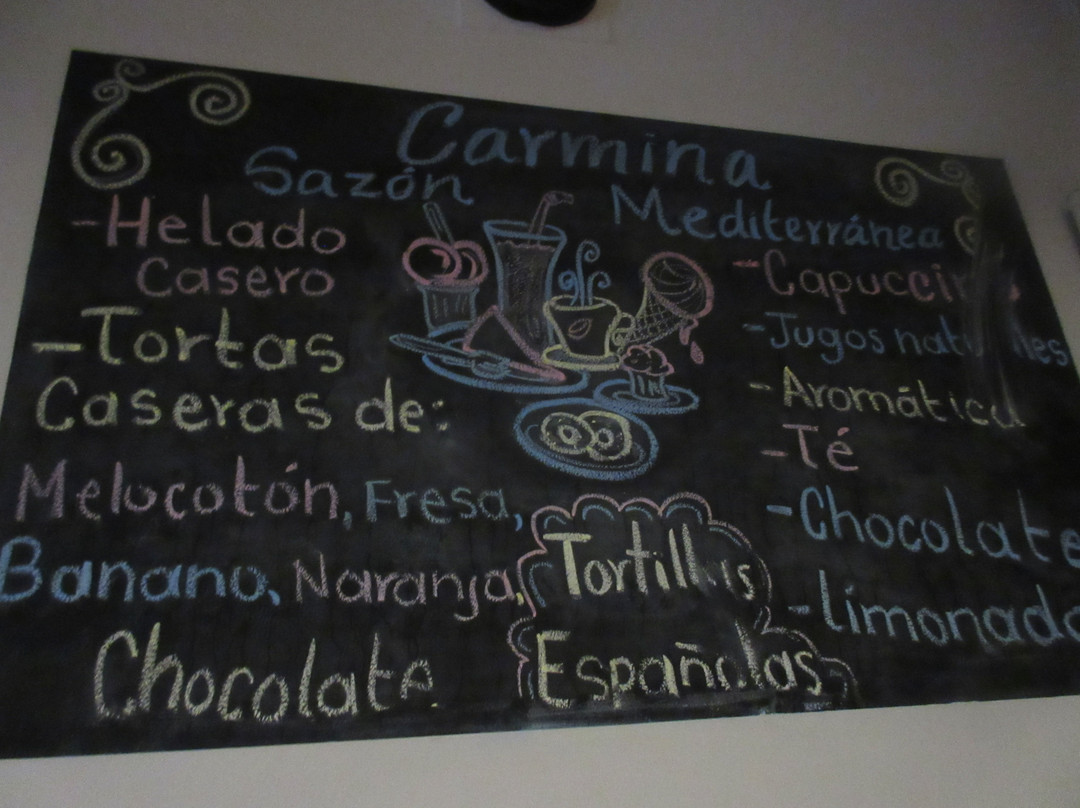 Carmina
Sazón Mediterránea
-Helado
Casero
-Tortas
Caseras de:
Melocotón, Fresa,
Banano, Naranja,
Chocolate
Tortillas
Españolas
-Jugos naturales
-Aromática
-Té
-Chocolate
-limonada